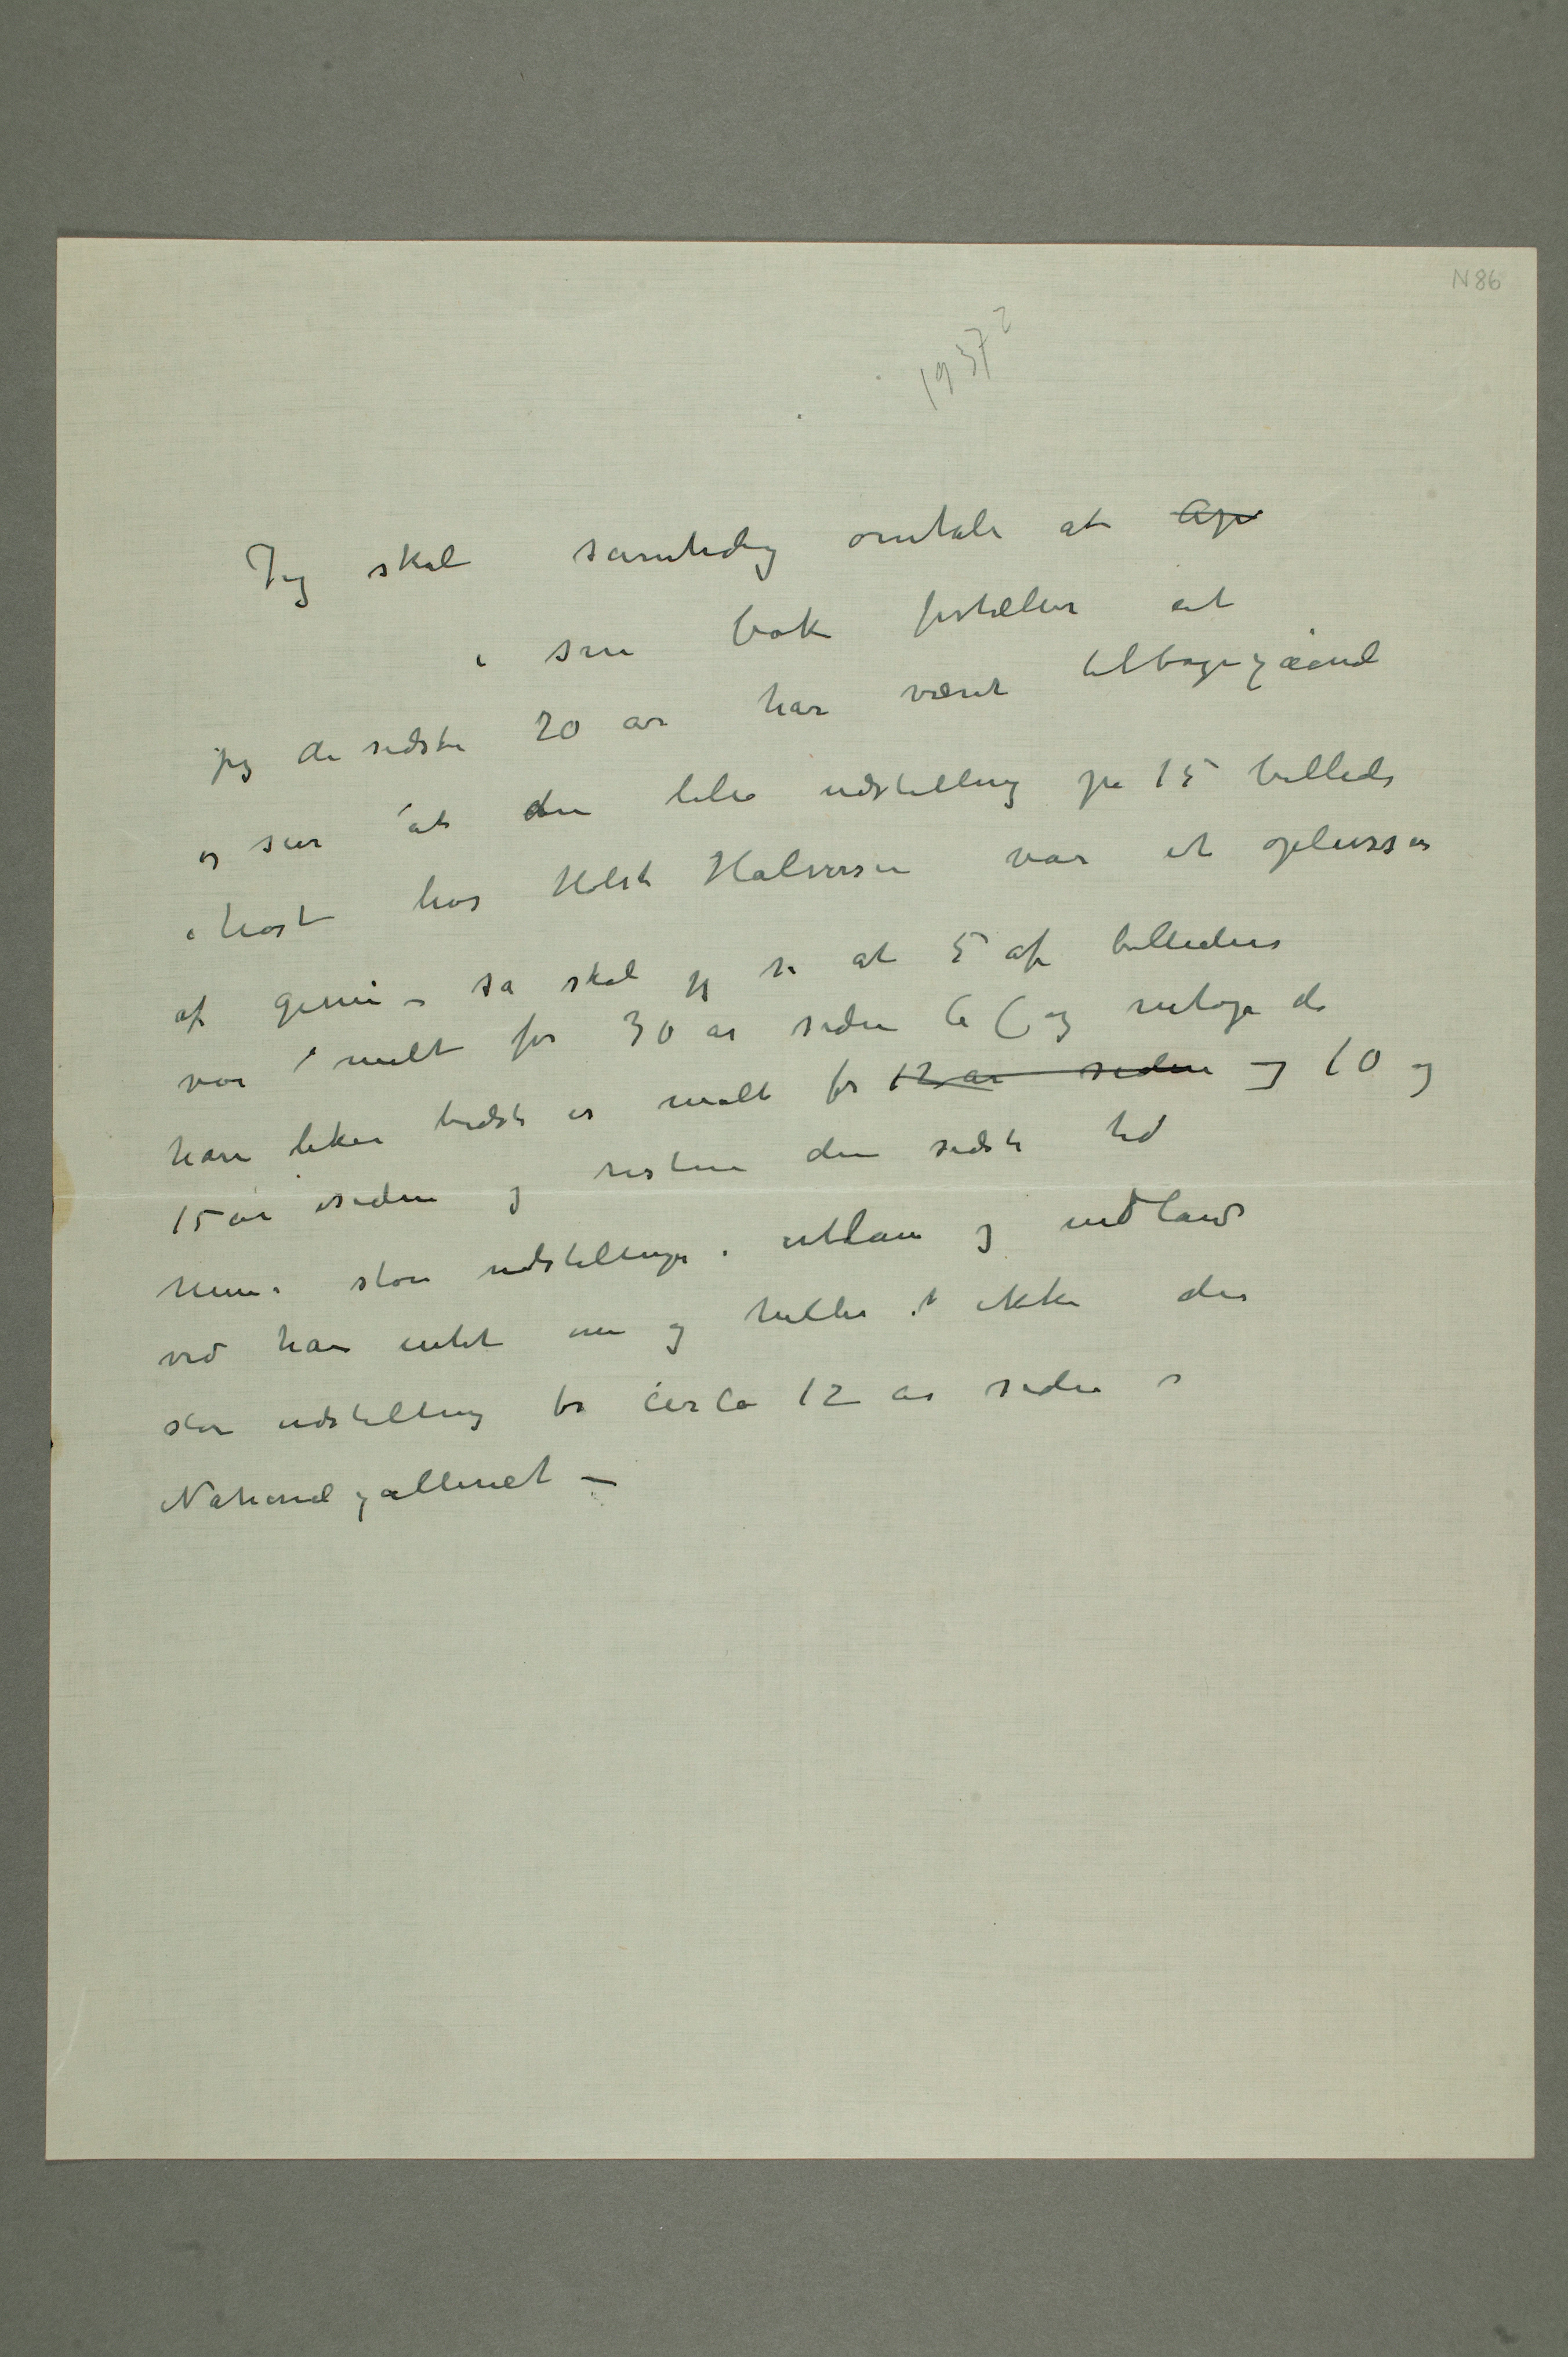 N 86
1937?
Jeg skal samtidig omtale at
i sin bok fortæller at
jeg de sidste 20 år har været tilbagegående
og sier at den lille udstilling på 15 billeder
i høst hos Holst Halvorsen var et opblussen
af geni – så skal jeg si at 5 af billederne
var malt for 30 år siden og netop de
han liker bedst er malt for 12 år siden og 10 og
15 år siden og resten den sidste tid
Mine store udstillinger i utland og indland
ved han intet om og heller ikke den
store udstilling for circa 12 år siden i
Nationalgalleriet –